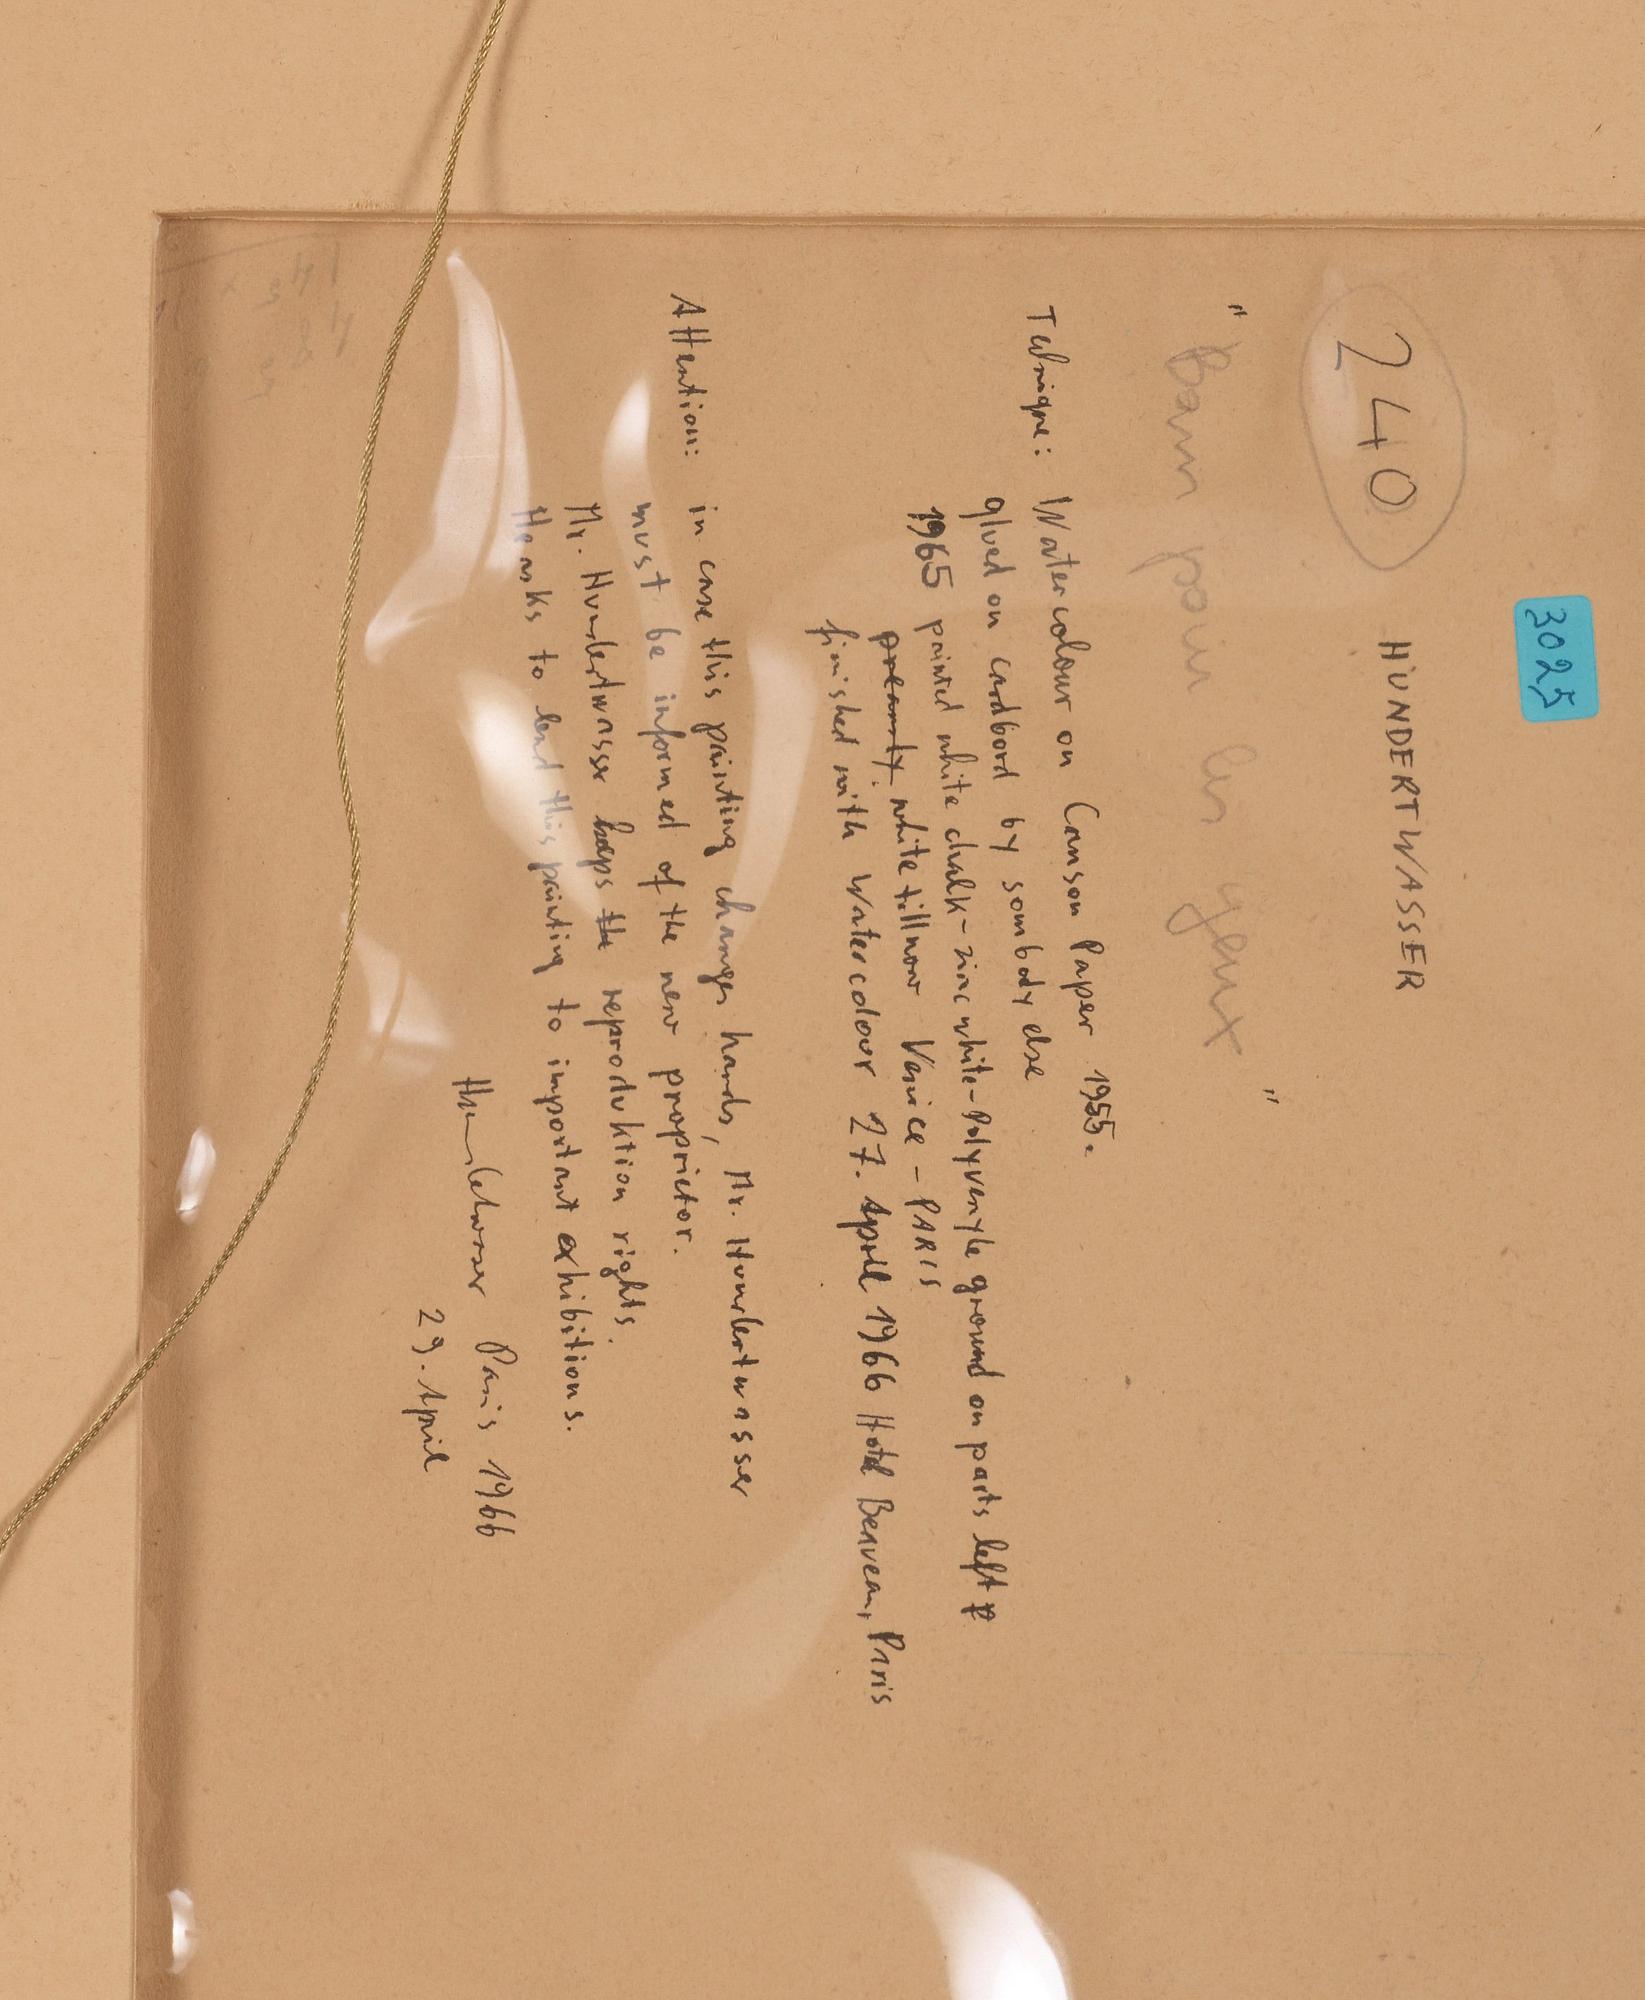 3025
240
HUNDERTWASSER
" Bain pour les yeux "
Technique: Watercolour on Canson Paper 1955.
glued on cardbord by sombody else
1965 painted white chalk-zinc white-Polyvenyle ground on parts left
white till now Venice - PARIS
finished with Watercolour 27. April 1966 Hotel Beauveau, Paris
Attention: in case this painting changes hands, Mr. Hundertwasser
must be informed of the new proprietor.
Mr. Hundertwasser keeps the reproduktion rights.
He asks to lend this painting to important exhibitions.
Hundertwasser Paris 1966
29. April